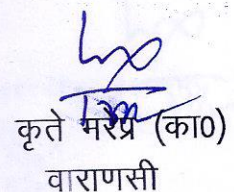 कृते मरेप्र (का0)
वाराणसी